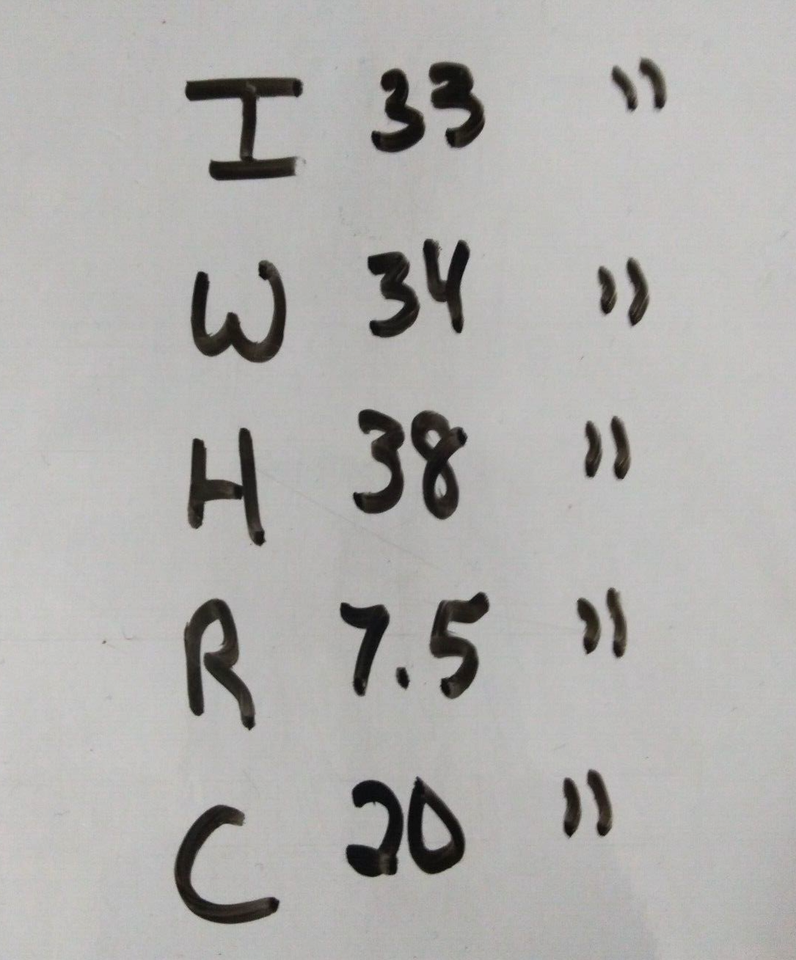 I 33 "
W 34 "
H 38 "
R 7.5 "
C 20 "